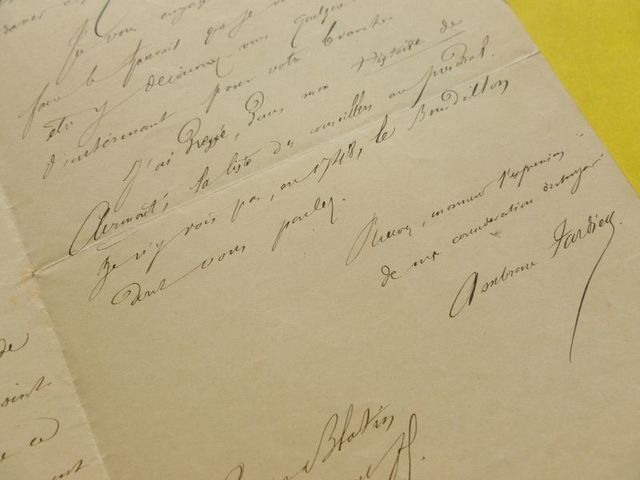 Je vous engage
face le pouvait que je
être y découvrir vous quelque
d'intéressant pour votre branche.
J'ai dressé, dans mon Histoire de
Clermont, la liste des conseillers au présidial.
Je n'y vois pas, en 1748, le Bourdillon
dont vous parlez.
Recevez, monsieur l'expression
de ma considération distinguée
Ambroise Tardieu
de
oint
ce
ent
Blatin